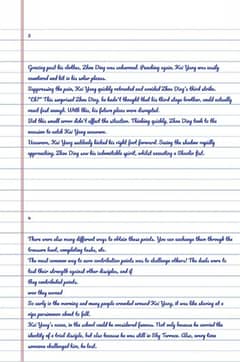 3
Grazing past his clothes, Zhou Ding was unharmed. Punching again, Kai Yang was easily
countered and hit in his solar plexus.
Suppressing the pain, Kai Yang quickly retreated and avoided Zhou Ding's third strike.
"Eh?" This surprised Zhou Ding, he hadn't thought that his third stage brother, could actually
react fast enough. With this, his future plans were disrupted.
But this small error didn't affect the situation. Thinking quickly, Zhou Ding took to the
occasion to catch Kai Yang unaware.
Unaware, Kai Yang suddenly kicked his right foot forward. Seeing the shadow rapidly
approaching, Zhou Ding saw his indomitable spirit, whilst executing a Ghostly fist.
4
There were also many different ways to obtain these points. You can exchange them through the
treasure hunt, completing tasks, etc.
The most common way to earn contribution points was to challenge others! The duels were to
test their strength against other disciples, and if
they contributed points.
were they earned
So early in the morning and many people crowded around Kai Yang, it was like staring at a
ripe persimmon about to fall.
Kai Yang's name, in the school could be considered famous. Not only because he carried the
identity of a trial disciple, but also because he was still in Sky Terrace. Also, every time
someone challenged him, he lost.